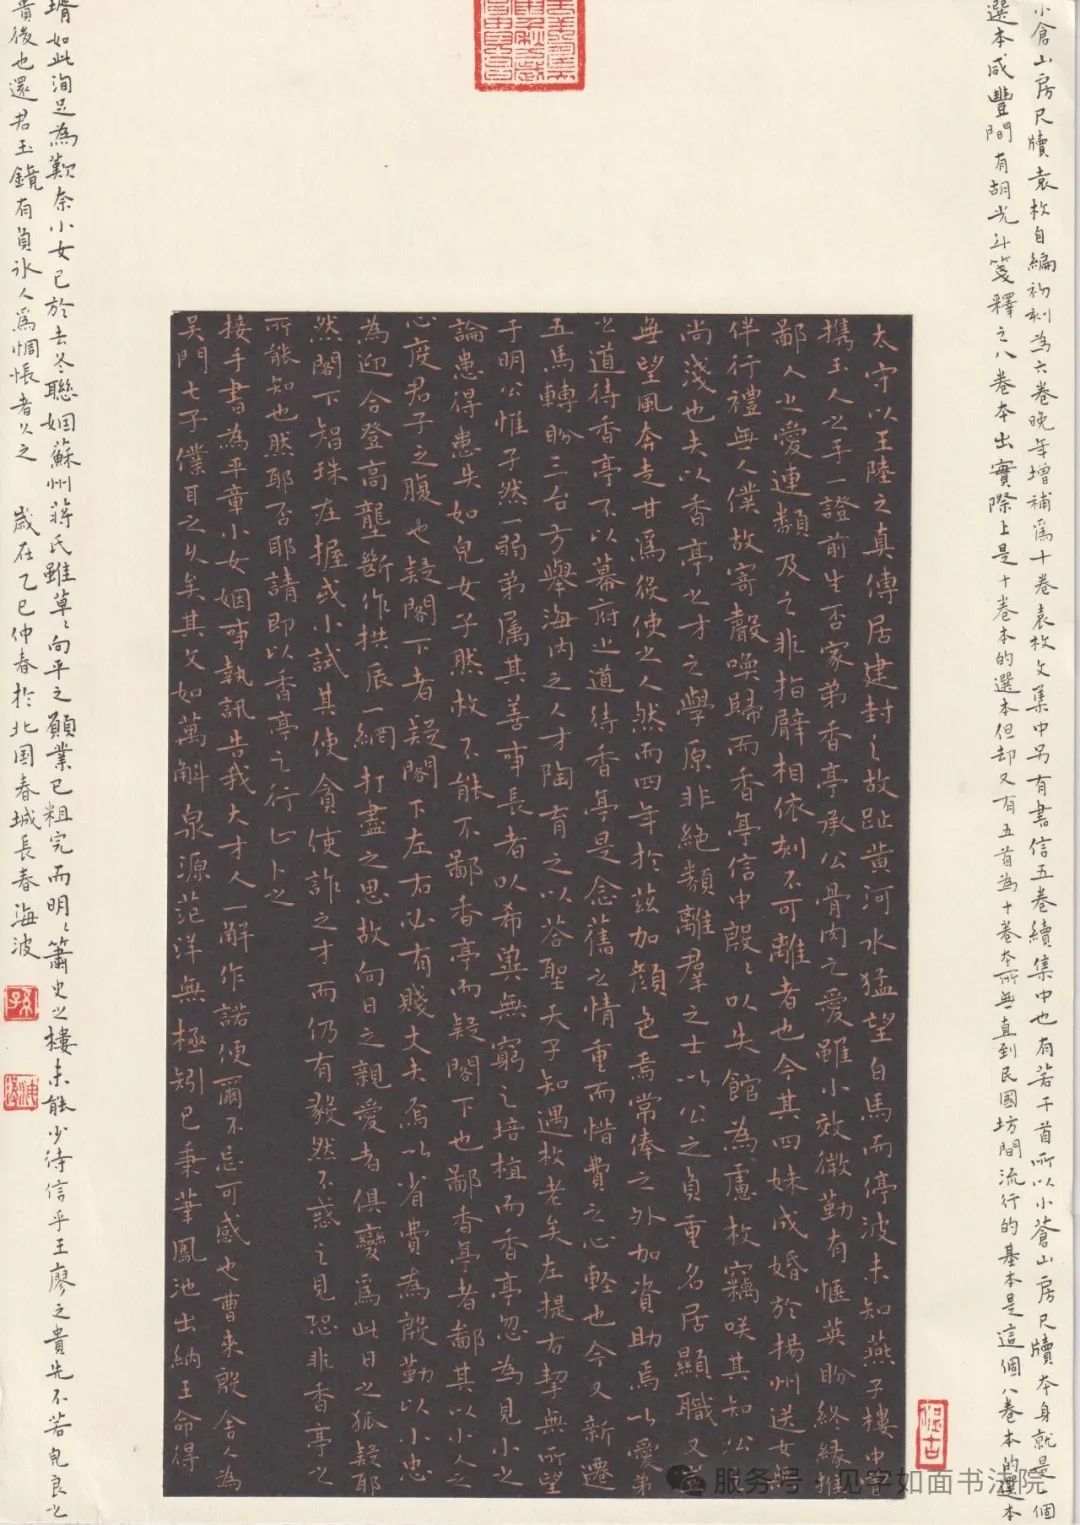 小倉山房尺牘袁枚自編初刻為六卷晚年增補為十卷袁枚文集中另有書信五卷續集中也有若干首所以小蒼山房尺牘本身就是一個
選本咸豐間有胡光斗箋釋之八卷本出實際上是十卷本的選本但却又有五首為十卷本所無直到民國坊間流行的基本是這個八卷本的選本
太守以王陸之真傳居建封之故趾黄河水猛望白馬而停波未知燕子樓中
攜玉人之手一證前生否家弟香亭承公骨肉之愛雖小效微勤有愜英盼終緣推
鄙人之愛連類及之非指臂相依刻不可離者也今其四妹成婚於揚州送女無
伴行禮無人僕故寄聲喚歸而香亭信中殷〻以失館為慮枚竊咲其知公
尚淺也夫以香亭之才之學原非絕類離羣之士以公之負重名居顯職又
無望風奔走甘為役使之人然而四年於茲加顏色焉常俸之外加資助焉以愛弟
之道待香亭不以幕府之道待香亭是念舊之情重而惜費之心輕也今又新遷
五馬轉盼三台方舉海內之人才陶育之以答聖天子知遇枚老矣左提右挈無所望
于明公惟孑然一弱弟属其善事長者以希冀無窮之培植而香亭忽為見小之
論患得患失如兒女子然枚不能不鄙香亭而疑閣下也鄙香亭者鄙其以小人之
心度君子之腹也疑閣下者疑閣下左右必有賤丈夫焉以省費為殷勤以小忠
為迎合登高壟斷作拱辰一網打盡之思故向日之親愛者俱變為此日之狐疑耶
然閣下智珠在握或小試其使貪使詐之才而仍有毅然不惑之見恐非香亭之
所能知也然耶否耶請即以香亭之行止卜之
接手書為平章小女姻事執訊告我大才人一解作諾便爾不忌可感也曹来殷舍人為
吳門七子僕耳之久矣其文如萬斛泉源茫洋無極矧已秉筆鳳池出納王命得
壻如此洵足為歎奈小女已於去冬聯姻蘇州蔣氏雖草〻向平之願業已粗完而明〻簫史之樓未能少待信乎王廖之貴先不若兒良之
貴後也還君玉鏡有負氷人為惆悵者久之 歲在乙巳仲春於北国春城長春海波
服务号·见字如面书法院